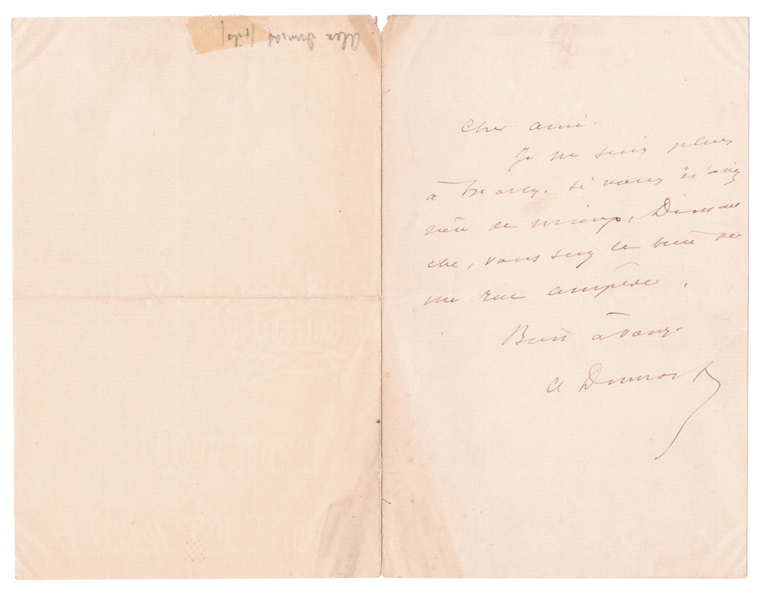 Alex Dumas (fils)
Cher ami
Je ne suis plus
à Marly. Si vous n'avez
rien de mieux, Diman
che, vous serez le bien ve
nu rue Ampère.
Bien à vous
A Dumas f